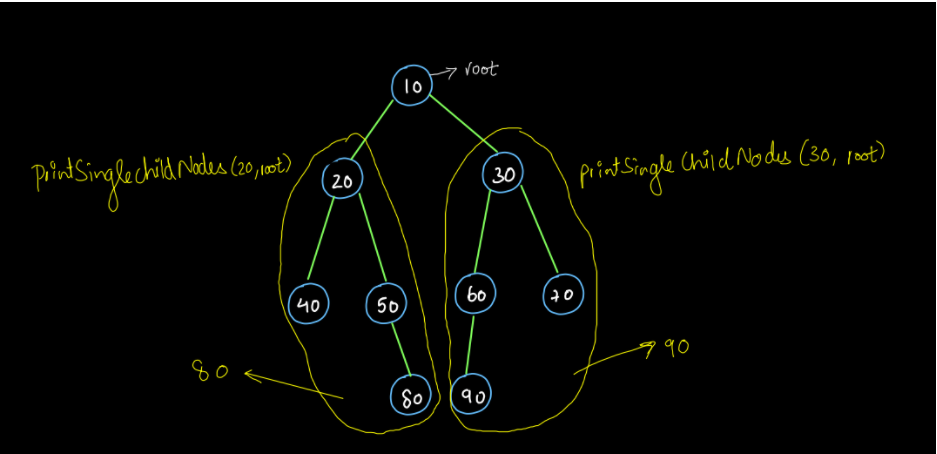 10
root
printSinglechildNodes (20, root)
printSingle Child Nodes (30, root)
20
30
40
50
60
70
80
90
80
90